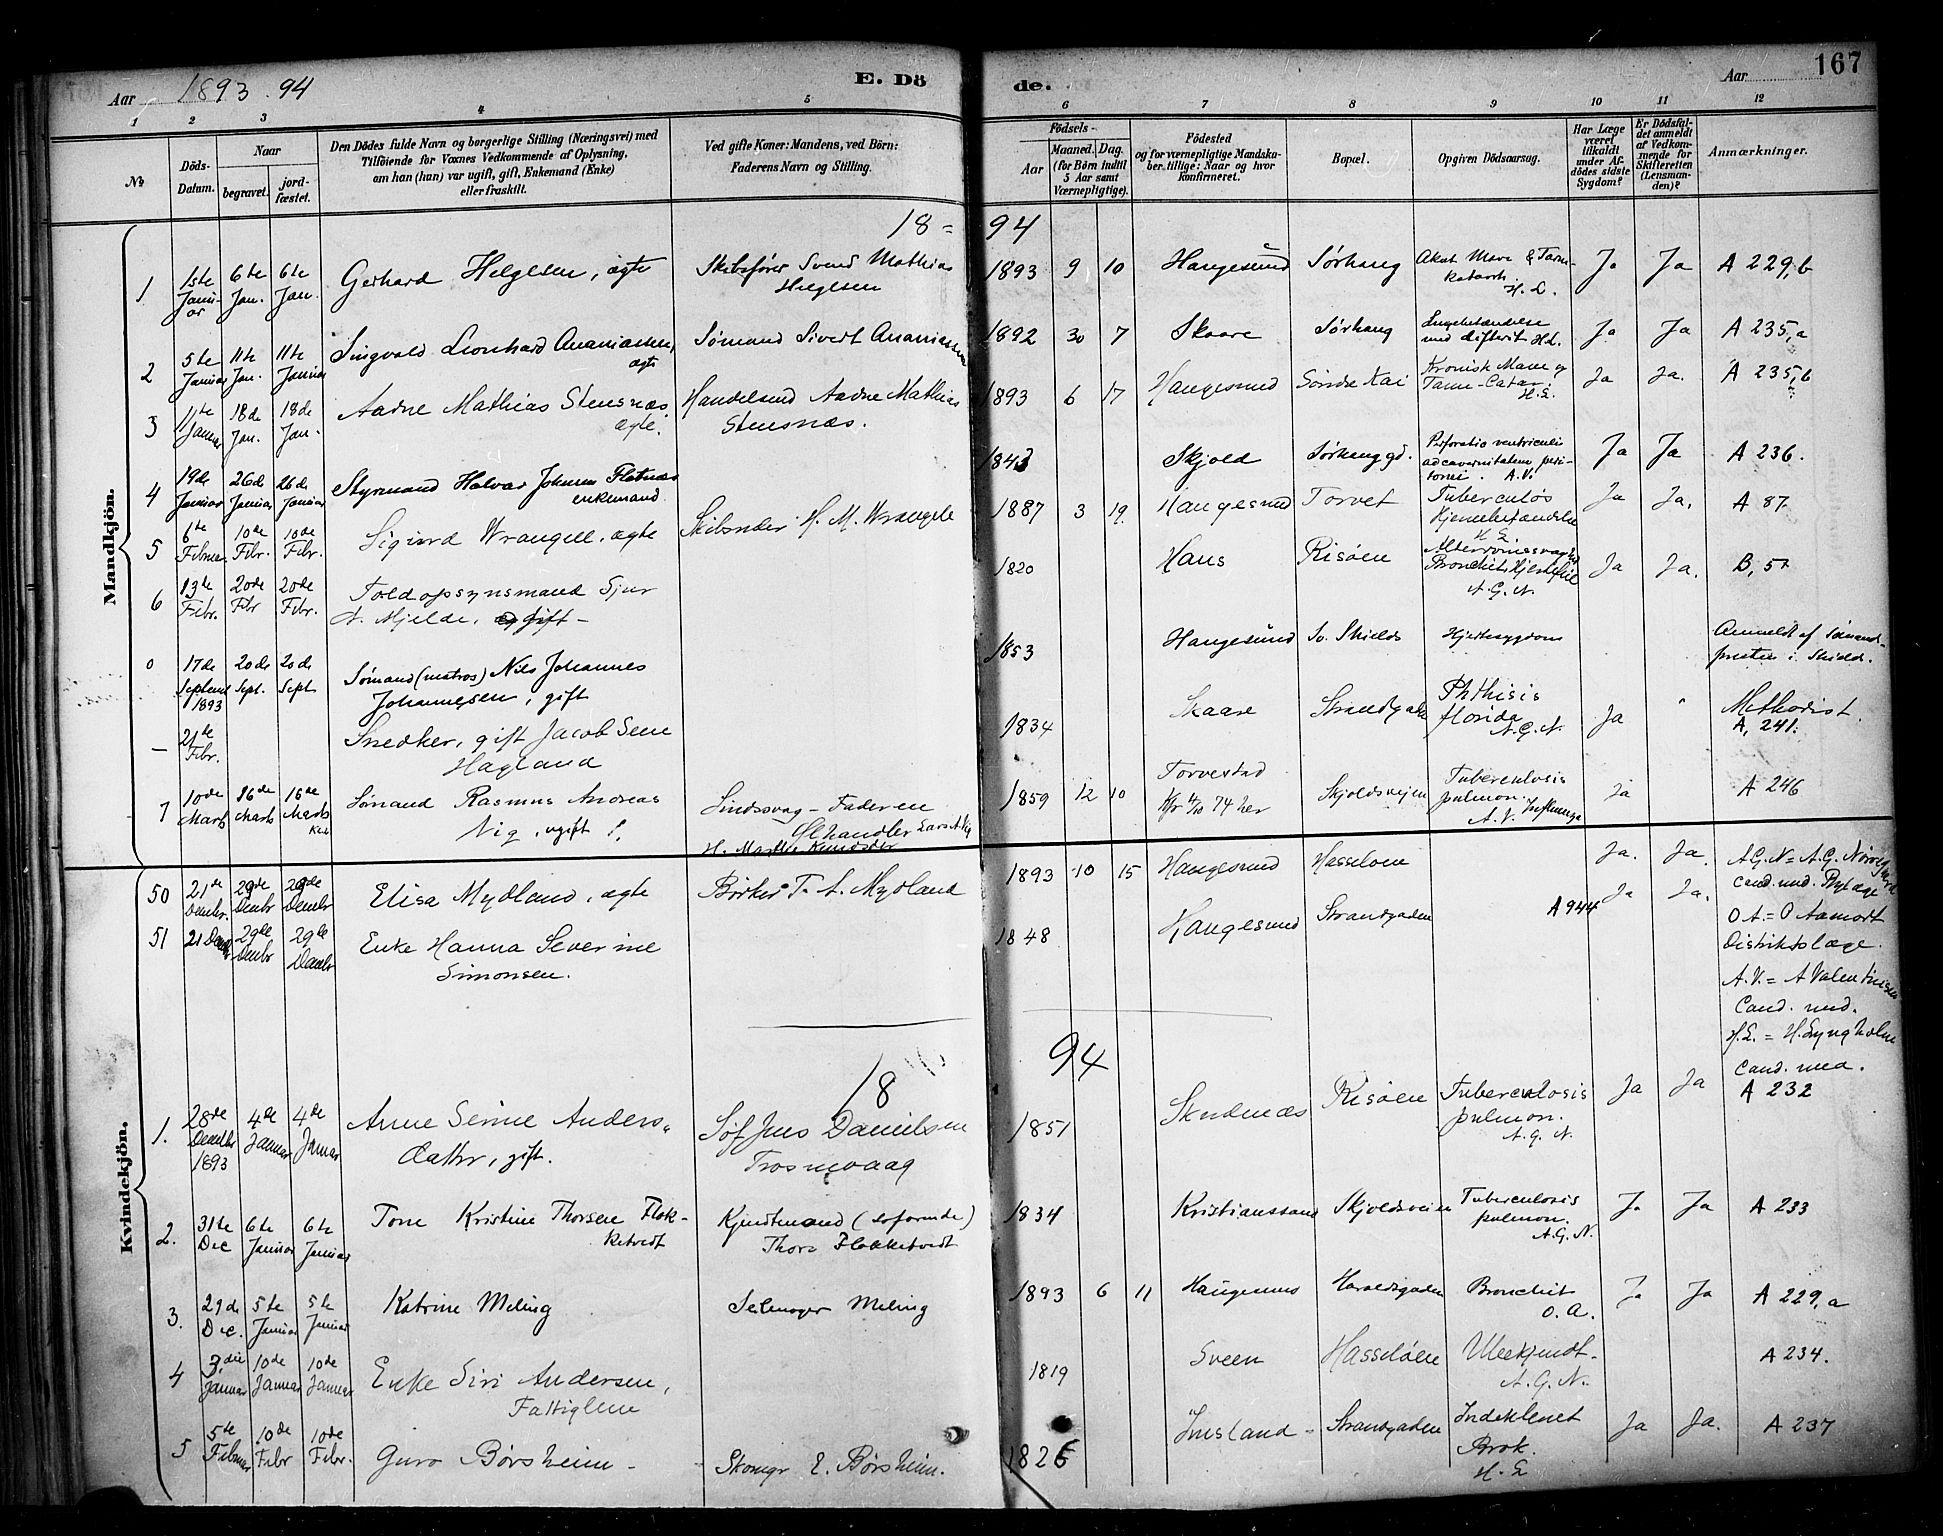 Aar 1893. 94
E. Dö
de.
Aar
167
1 2 3 4 5 6 7 8 9 10 11 12
No
Döds-Datum.
Naar
begravet.
jord-fæstet.
Den Dödes fulde Navn og borgerlige Stilling (Næringsvei) med
Tilföiende for Voxnes Vedkommende af Oplysning,
om han (hun) var ugift, gift, Enkemand (Enke)
eller fraskilt.
Ved gifte Koner: Mandens, ved Börn:
Faderens Navn og Stilling.
Födsels-
Aar
Maaned. Dag.
(for Börn indtil
5 Aar samt
Værnepligtige).
Födested
og for værnepligtige Mandska-
ber tillige: Naar og hvor
konfirmeret.
Bopæl.
Opgiven Dödsaarsag.
Har Læge
været
tilkaldt
under Af-
dödes sidste
Sygdom?
Er Dödsfal-
det anmeldt
af Vedkom-
mende for
Skifteretten
(Lensman-
den)?
Anmærkninger.
Mandkjön.
18 = 94
1 1ste Januar 6te Jan. 6te Jan. Gerhard Helgesen, ægte Skibsfører Svend Mathias Helgesen 1893 9 10 Haugesund Sørhaug Akut Mave & Tarm-katarrh. H. L. Ja Ja A 229,b
2 5te Januar 11te Jan. 11te Januar Singvald Leonhard Ananiassen, ægte Sømand Sivert Ananiassen 1892 30 7 Skaare Sørhaug Lungebetændelse med difterit H.L. Ja Ja A 235,a
3 11te Januar 18de Jan. 18de Jan. Aadne Mathias Stensnæs, ægte. Handelsmd Aadne Mathias Stensnæs. 1893 6 17 Haugesund Søndre Kai Kronisk Mave og Tarm-Catar. H.L. Ja Ja. A 235,b
4 19de Januar 26de Januar 26de Januar Styrmand Halvar Johnsen Flatnæs enkemand. 1843 Skjold Sørhauggd. Perforatio ventriculi peritonei. A.V. Ja Ja A 236.
5 6te Februar 10de Febr. 10de Febr. Sigurd Wrangell, ægte Skibsreder H. M. Wrangell 1887 3 19. Haugesund Torvet Tuberculøs Hjernebetændelse H L Ja Ja. A 87.
6 13te Febr. 20de Febr 20de Febr. Toldopsynsmand Sjur A. Mjelde, gift - 1820 Hans Risøen Alderdomssvaghed Bronchit, Hjertefeil A. G. N. Ja Ja. B, 5
0 17de Septembr 1893 20de Sept. 20de Sept Sømand (matros) Nils Johannes Johannessen, gift 1853 Haugesund So. Shields Hjertesygdom Anmeldt af Sømandspresten i Shields.
— 21te Febr. Snedker, gift Jacob Seen Hagland 1834 Skaare Strandgaden Phthisis florida A.G.N. Ja " Methodist. A, 241.
7 10de Marts 16de Marts 16de Marts Sømand Rasmus Andreas Vig, ugift Sindssvag - Faderen Ølhandler Lars A. Vig H. Marthe Knudsdtr 1859 12 10 Torvestad kfr 4/10 74 her Skjoldsveien Tuberculosis pulmon. A. V. Influenza Ja A 246
Kvindekjön.
50 21de Decmbr. 29de Decmbr 29de Decmbr Elisa Mydland, ægte Bødker T. A. Mydland 1893 10 15 Haugesund Hasseløen Ja. Ja.
51 21 Decbr 29de Decmbr 29de Decmbr Enke Hanna Severine Simonsen. 1848 Haugesund Strandgaden A 944 Ja Ja.
A.G.N = A.G. Nørregaard
Cand. med. Bylæge
O A. = O Aamodt
Distriktslæge.
A.V. = A Valentinsen
Cand. med.
H.L. = H. Lyngholm
Cand. med.
18 94
1. 28de Decembr 1893 4de Januar 4de Januar Anne Serine Anders-Datter, gift. Søf Jens Danielsen Trosnevaag 1851 Skudnæs Risøen Tuberculosis pulmon. A. G. N. Ja Ja A 232
2. 31te Dec 6te Januar 6te Januar Tone Kristine Thorsen Flok-ketvedt Kjendtmand (Losformd) Thore Flokketvedt 1834 Kristianssand Skjoldsveien Tuberculosis pulmon. A.G.N. Ja Ja A 233
3. 29de Dec. 5te Januar 5te Januar Katrine Meling Seilmager Meling 1893 6 11 Haugesund Haraldsgaden Bronchit O. A. Ja Ja A 229,a
4 3die Januar 10de Januar 10de Januar Enke Siri Andersen, Fattiglem 1819 Sveen Hasseløen Ubekjendt. A.G.N. A 234.
5 5te Februar 10de Febr 10de Febr. Guro Børsheim - Skomgr E. Børsheim. 1826 Imsland - Strandgaden Indeklemt Brok. H. L Ja Ja. A 237